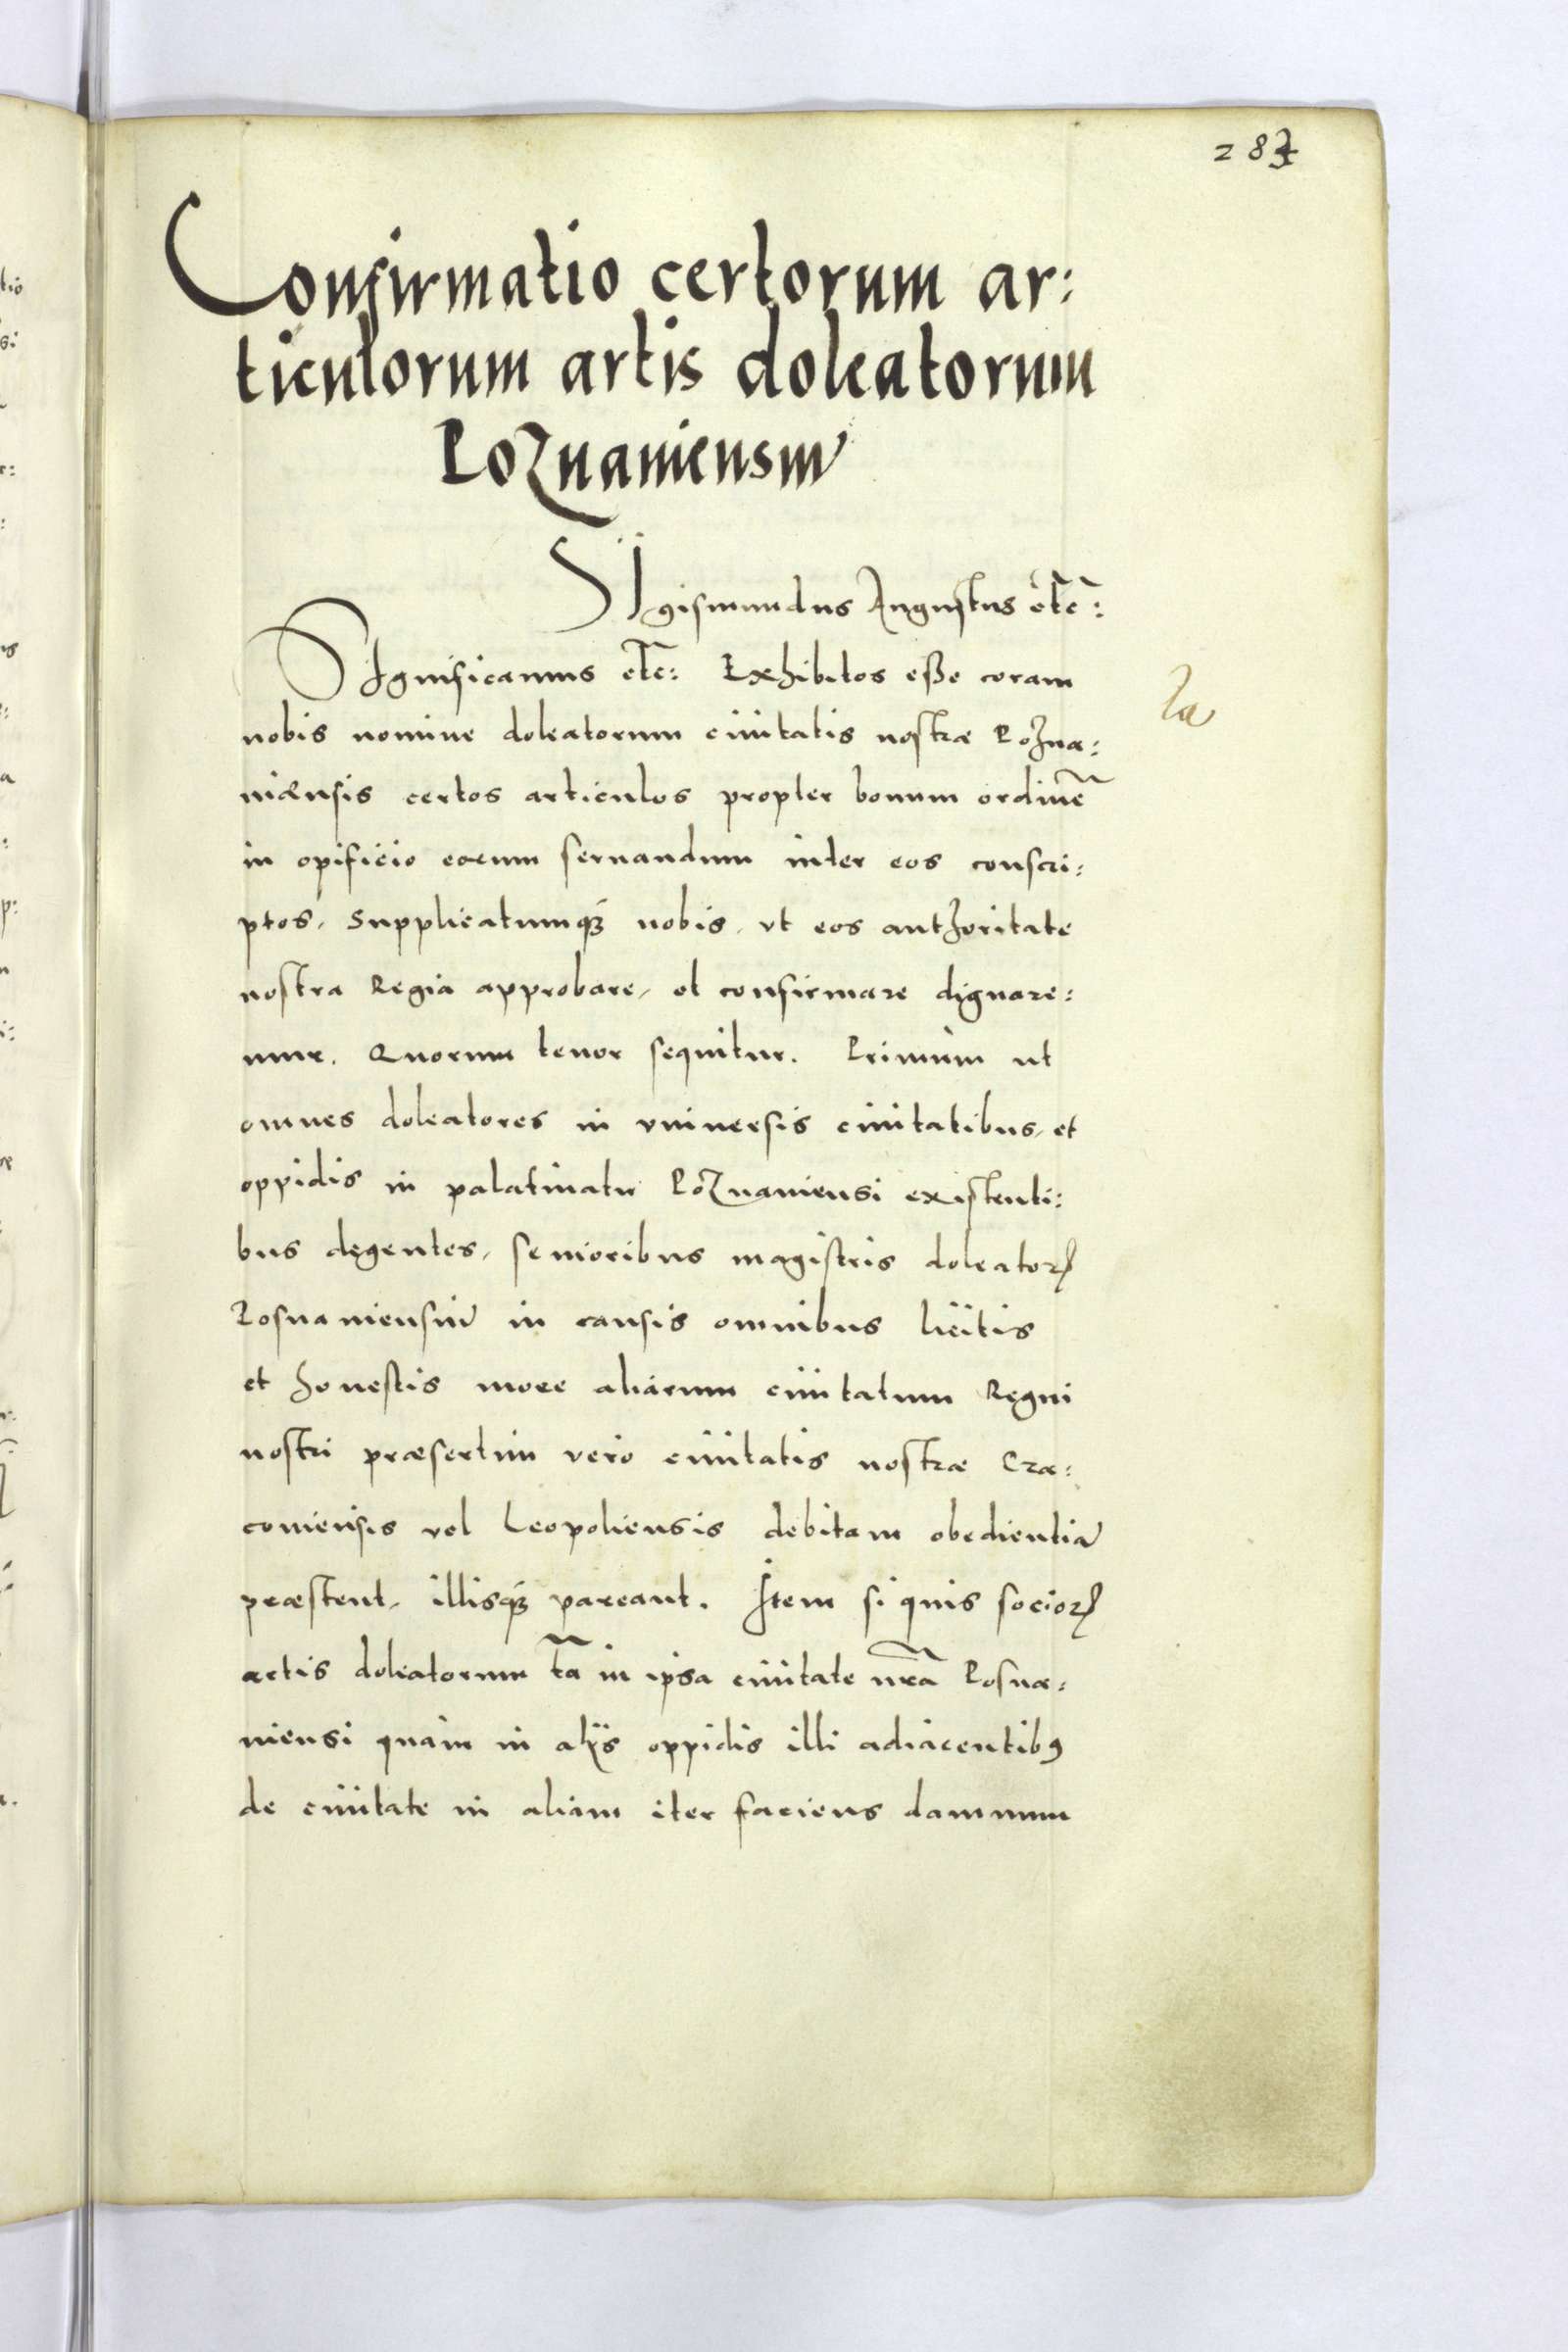 Confirmatio certorum ar:
ticulorum artis doleatorum
Poznaniensiu
SIgismundus Augustus etc:
SIgnificamus etc: Exhibitos esse coram
nobis nomine doleatorum ciuitatis nostræ Pozna:
niænsis certos articulos propter bonum ordinẽ
in opificio eorum seruandum inter eos conscri:
ptos, Supplicatumq₃ nobis, vt eos authoritate
nostra Regia approbare, et confirmare dignare:
mur. Quorum tenor sequitur. Primùm ut
omnes doleatores in vniuersis ciuitatibus, et
oppidis in palatinatu Poznaniensi existenti:
bus degentes, senioribus magistris doleatorꝝ
Posnaniensiũ in causis omnibus licitis
et honestis more aliarum ciuitatum Regni
nostri præsertim vero ciuitatis nostræ Cra:
couiensis vel Leopoliensis debitam obedientiã
præstent, illisq₃ pareant. Item si quis sociorꝝ
artis doleatorum tã in ipsa ciuitate nr̃a Posna:
niensi quàm in alijs oppidis illi adiacentibꝰ
de ciuitate in aliam iter faciens damnum